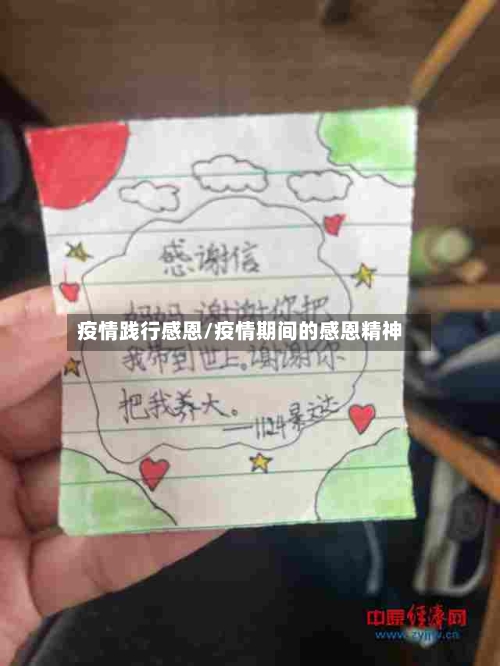 感谢信
妈妈,谢谢你把
疫情践行感恩/疫情期间的感恩精神
我带到世上。谢谢你
把我养大。
——1124
中原经济网
www.zyjjw.cn